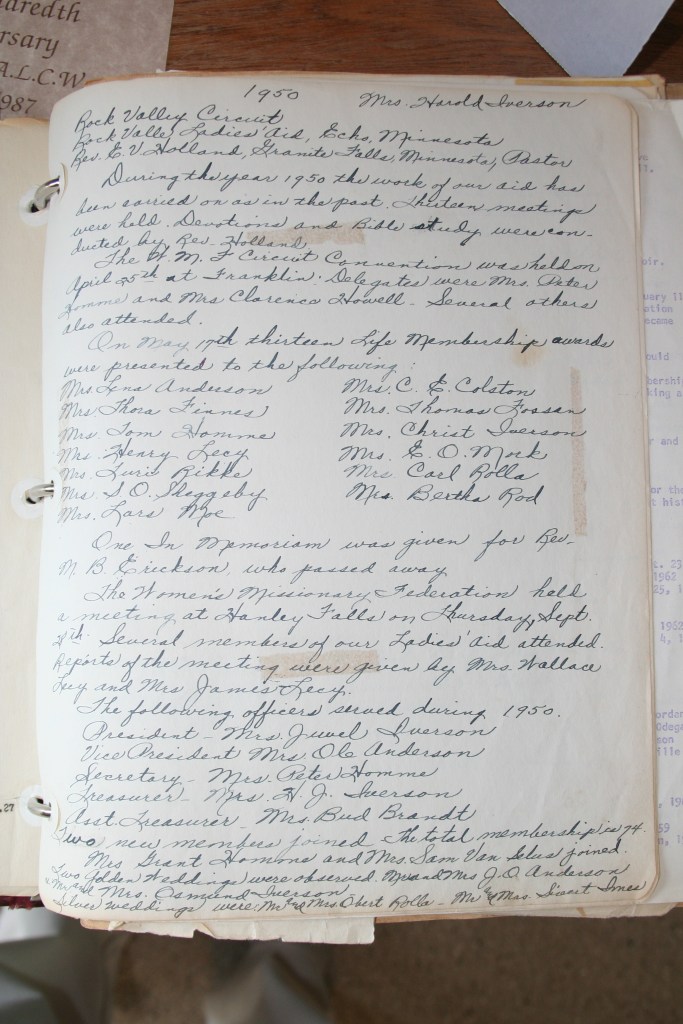 aredth
rsary
A.L.C.W
1987
1950 Mrs. Harold Iverson
Rock Valley Circuit
Rock Valley Ladies' Aid, Echo, Minnesota
Rev. E. V. Holland, Granite Falls, Minnesota, Pastor
During the year 1950 the work of our aid has
been carried on as in the past. Thirteen meetings
were held. Devotions and Bible study were con-
ducted by Rev. Holland.
The W. M. F Circuit Convention was held on
April 25th at Franklin. Delegates were Mrs. Peter
Homme and Mrs Clarence Howell - Several others
also attended.
On May 17th thirteen Life Membership awards
were presented to the following:
Mrs. Lena Anderson Mrs. C. E. Colston
Mrs. Thora Finnes Mrs. Thomas Fossan
Mrs. Tom Homme Mrs. Christ Iverson
Mrs. Henry Lecy Mrs. E. O. Mork
Mrs. Rikke Mrs Carl Rolla
Mrs. S. O. Skeggeby Mrs. Bertha Rod
Mrs. Lars Moe
One In Memoriam was given for Rev.
M. B. Erickson, who passed away
The Women's Missionary Federation held
a meeting at Hanley Falls on Thursday, Sept.
Several members of our Ladies' Aid attended.
Reports of the meeting were given by Mrs. Wallace
Lecy and Mrs James Lecy.
The following officers served during 1950.
President - Mrs. Juvel Iverson
Vice President Mrs. Ole Anderson
Secretary - Mrs. Peter Homme
Treasurer - Mrs. H. J. Iverson
Asst. Treasurer Mrs. Bud Brandt
Two new members joined - The total membership is 74.
Mrs Grant Homme and Mrs. Sam Van joined.
Two Golden Weddings were observed. Mr and Mrs J. O. Anderson
Mr and Mrs. Osmund Iverson
Silver weddings were: Mr & Mrs Obert Rolla - Mr & Mrs. Sivert Imes